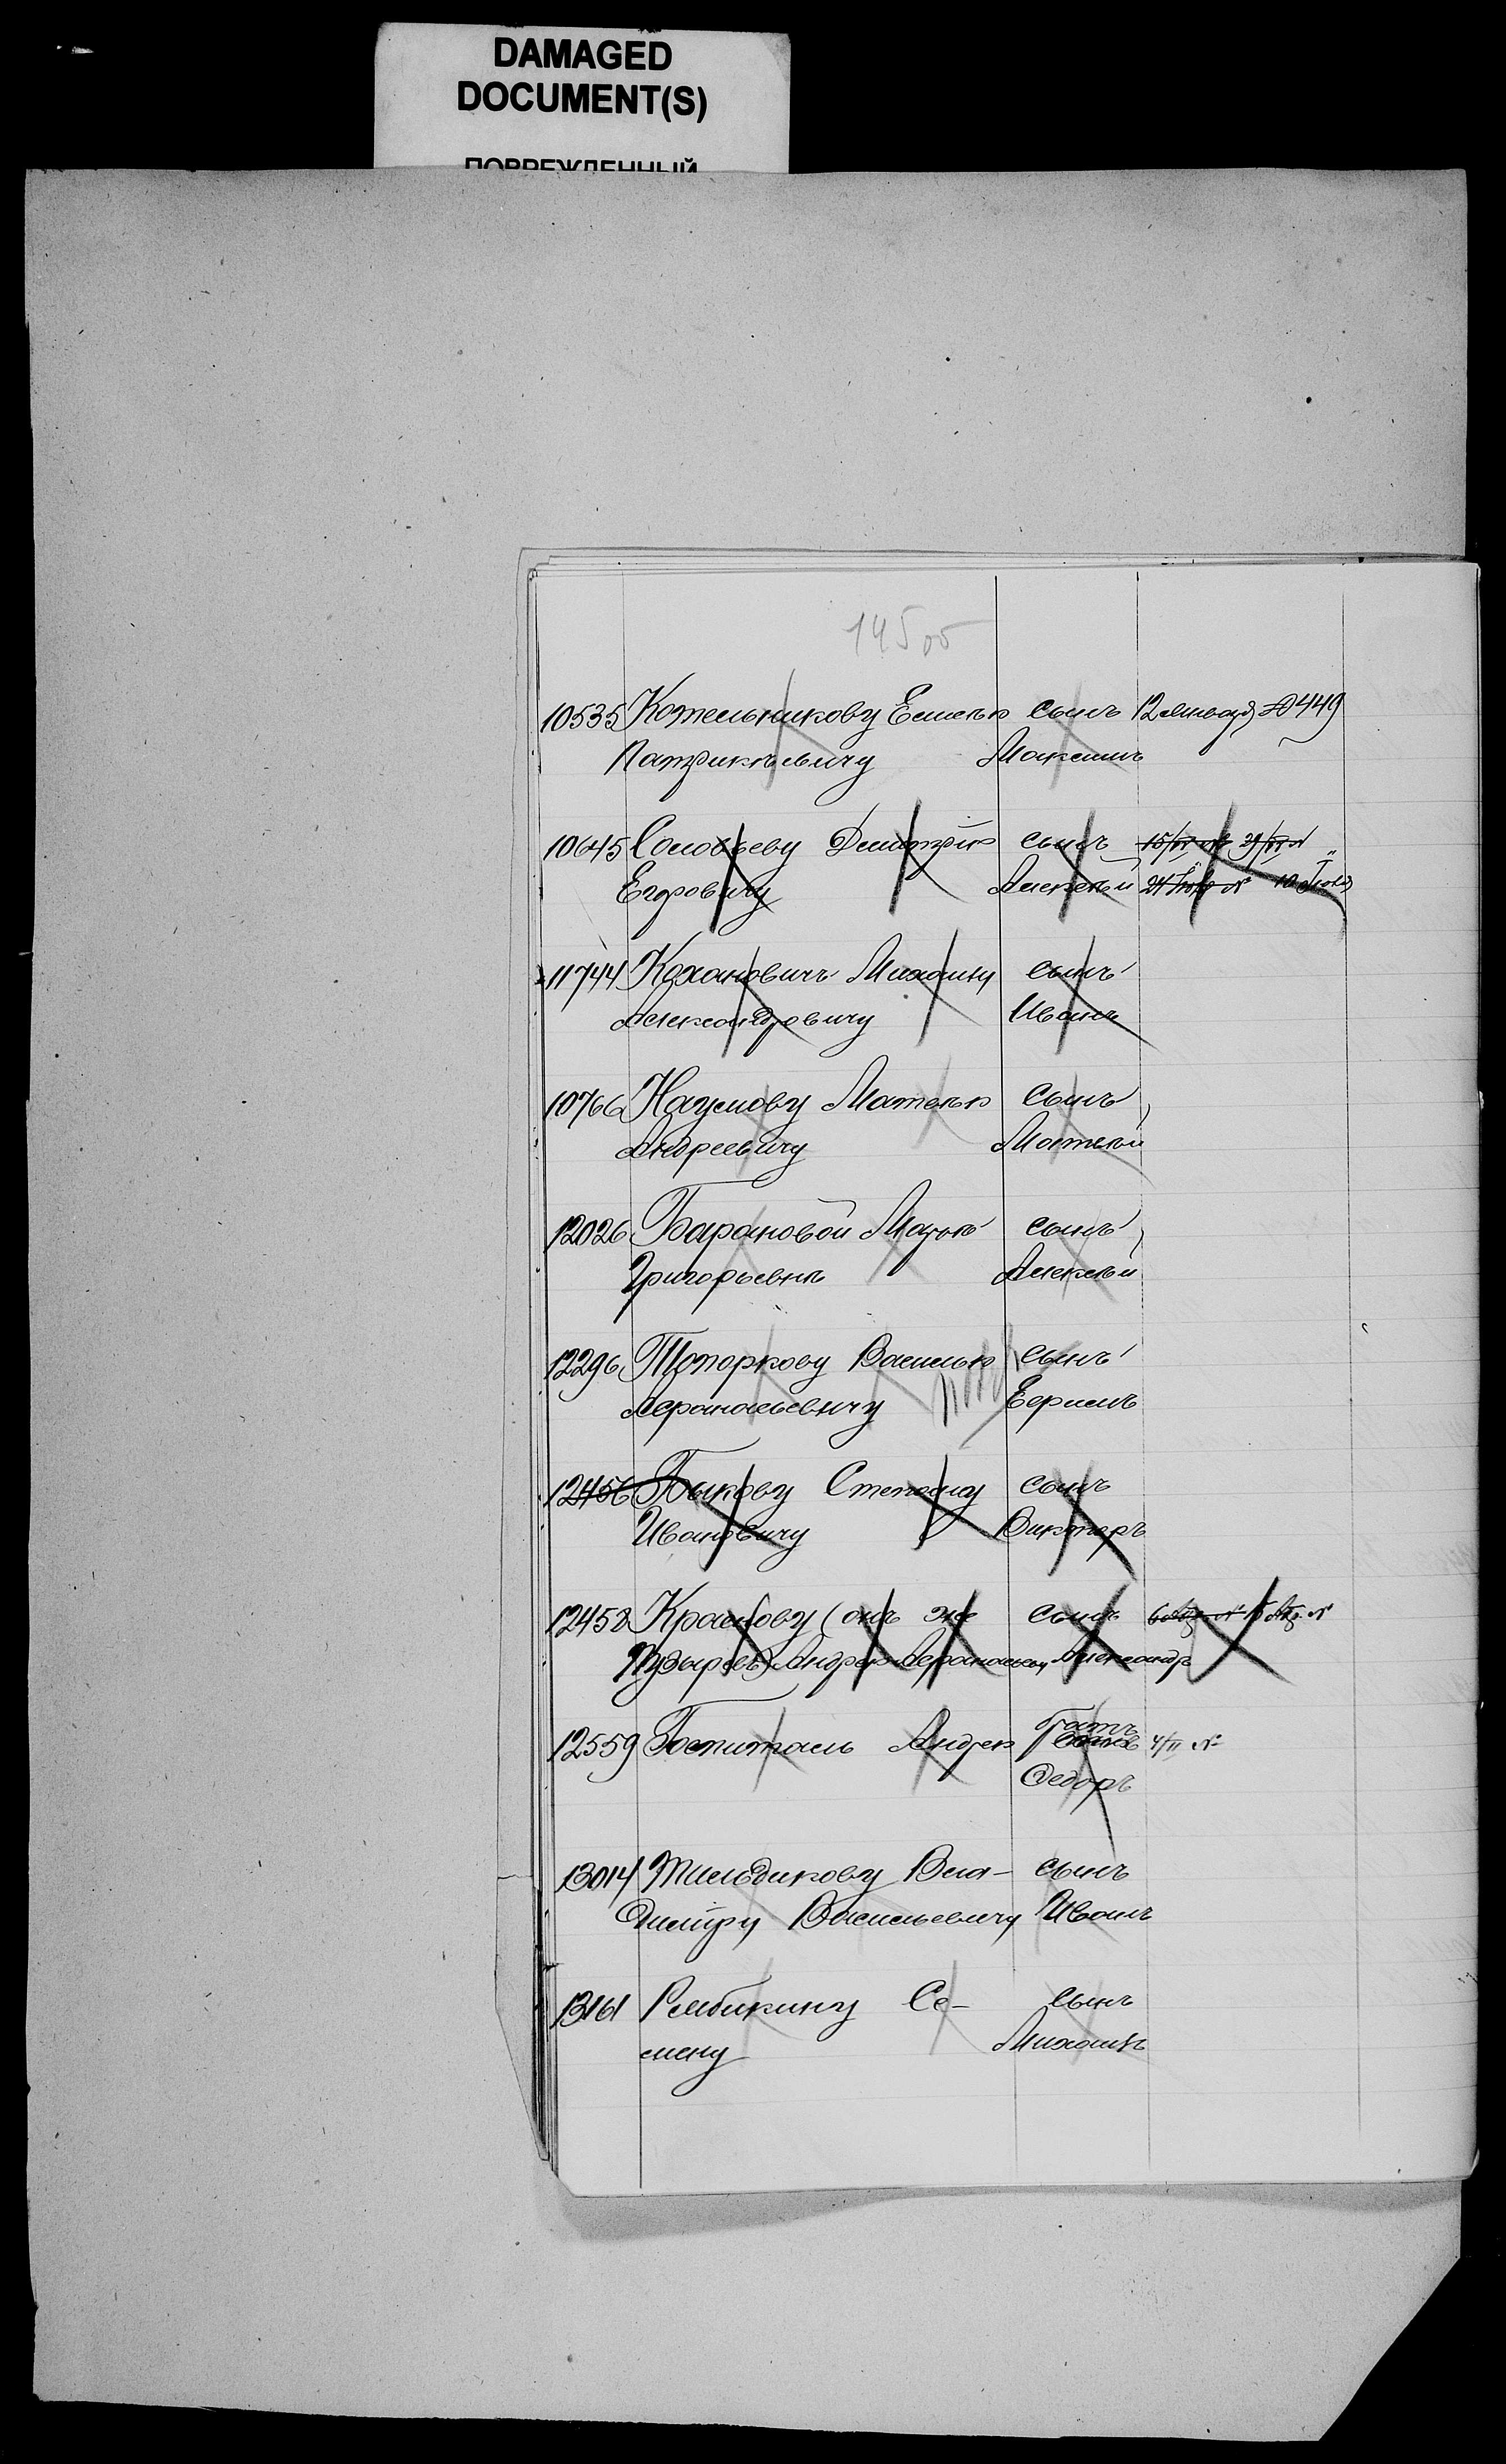 DAMAGED
DOCUMENT(S)
ПОВРЕЖДЕННЫЙ
145 об
10535 Котельникову Емельѣ сынъ 12 Января № 449
Патрикѣевичу Максимъ
10645 Соловьеву Дмитрію сынъ
Егоровичу Алексѣй
11744 Кохановичъ Михаилу сынъ
Александровичу Иванъ
10766 Наумову Матвѣю сынъ
Андреевичу Матвѣй
12026 Барановой Марьѣ сынъ
Григорьевнѣ Алексѣй
12296 Топоркову Василью сынъ
Афанасьевичу Ефимъ
12456 Быкову Степану сынъ
Ивановичу Викторъ
12458 Краснову (онъ же сынъ
Пузыревъ) Андрею Афанасьев. Александръ
12559 Госпиталь Андрею братъ 4/II №
Федоръ
13014 Вла- сынъ
димиру Васильевичу Иванъ
13161 Рембикину Се- сынъ
мену Михаилъ